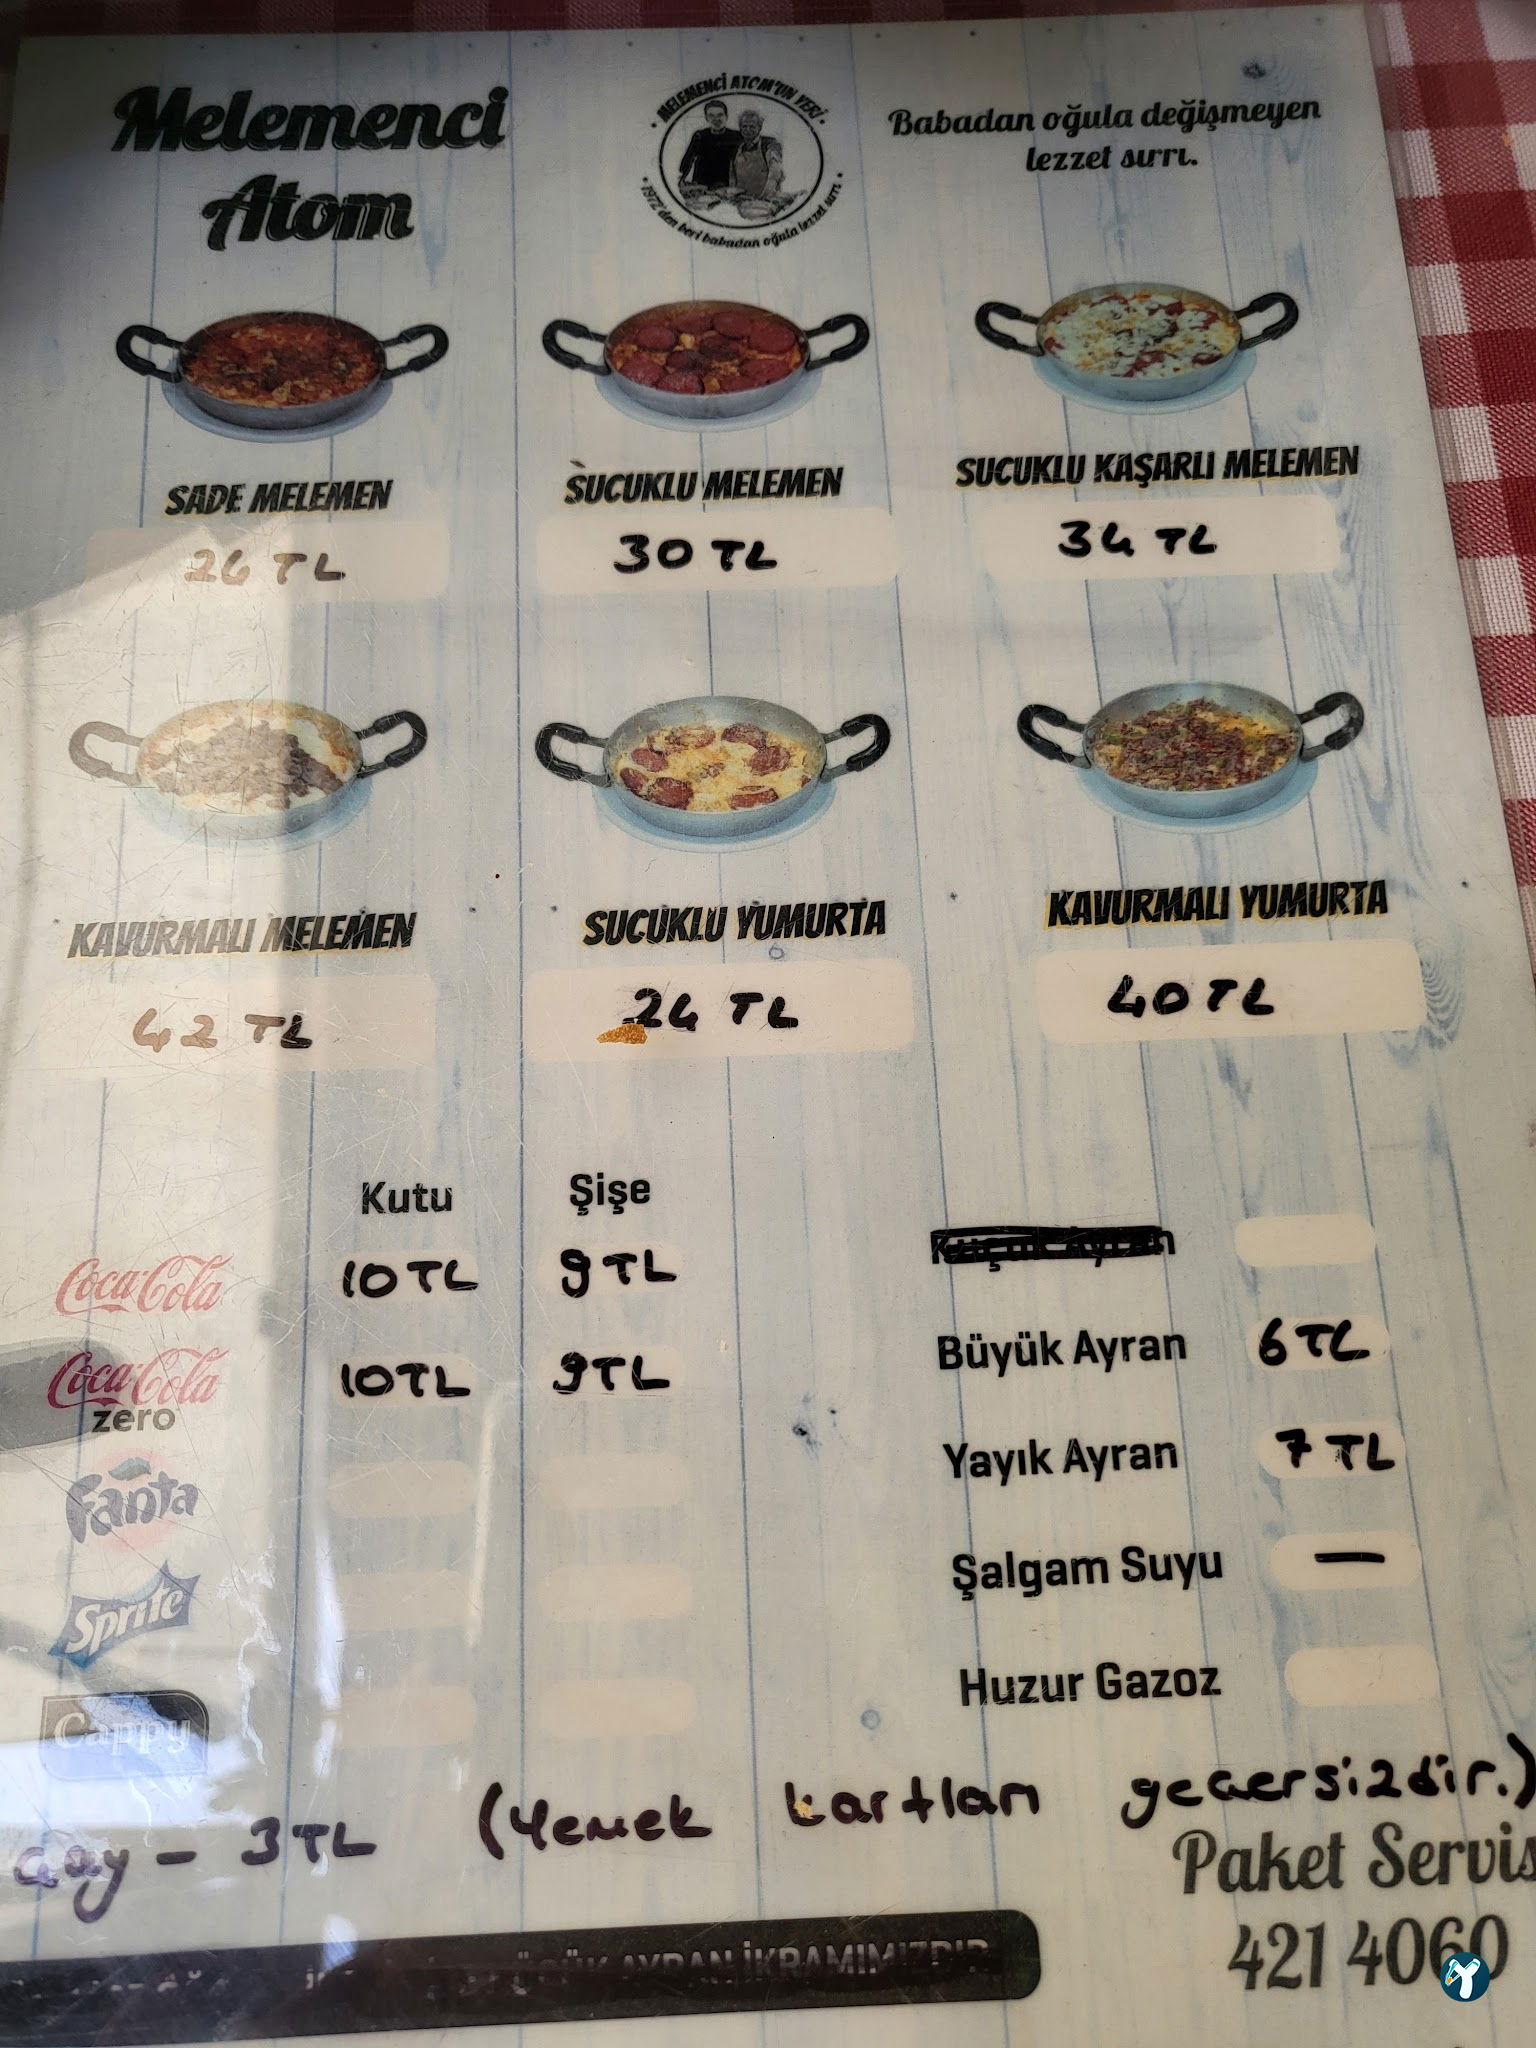 Melemenci
Atom
MELEMENCİ ATOM'UN YERİ
1972'den beri babadan oğula lezzet sırrı.
Babadan oğula değişmeyen
lezzet sırrı.
SADE MELEMEN
SUCUKLU MELEMEN
SUCUKLU KAŞARLI MELEMEN
26 TL
30 TL
34 TL
KAVURMALI MELEMEN
SUCUKLU YUMURTA
KAVURMALI YUMURTA
42 TL
24 TL
40 TL
Kutu Şişe
Coca-Cola 10 TL 9 TL
Coca-Cola zero 10 TL 9 TL
Fanta
Sprite
Cappy
Küçük Ayran
Büyük Ayran 6 TL
Yayık Ayran 7 TL
Şalgam Suyu —
Huzur Gazoz
çay - 3 TL (Yemek kartları geçersizdir.)
Paket Servis
421 4060
AYRAN İKRAMIMIZDIR